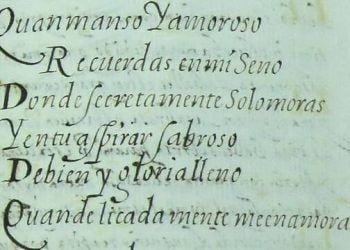 Quan manso Y amoroso
Recuerdas en mi Seno
Donde secretamente Solo moras
Y en tu aspirar sabroso
De bien y gloria lleno
Quan delicadamente me enamora